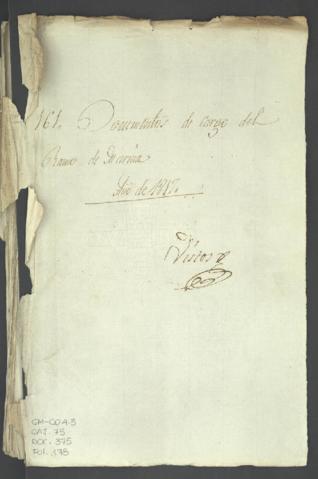 161. Documentos de cargo del
Ramo de Marina
Año de 1817.
Vistos
GM-CO4.3
CAJ. 75
DOC. 375
FOL. 178